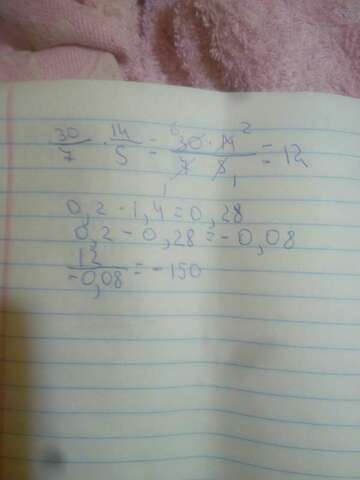 30/7 · 14/5 = 30 · 14/7 · 5 = 12
6 2 1 1
0,2 · 1,4 = 0,28
0,2 - 0,28 = - 0,08
12/-0,08 = - 150